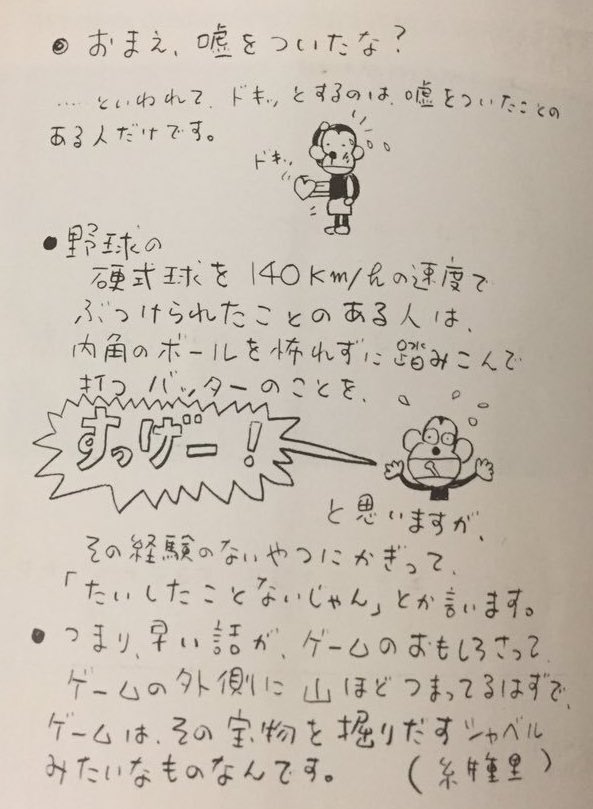 ◎ おまえ、嘘をついたな？
……といわれて、ドキッとするのは、嘘をついたことの
ある人だけです。
ドキッ
●野球の
硬式球を 140km/hの速度で
ぶつけられたことのある人は、
内角のボールを怖れずに踏みこんで
打つバッターのことを、
すっげー！
と思いますが、
その経験のないやつにかぎって、
「たいしたことないじゃん」とか言います。
●つまり、早い話が、ゲームのおもしろさって、
ゲームの外側に山ほどつまってるはずで、
ゲームは、その宝物を掘りだすシャベル
みたいなものなんです。（糸重里）